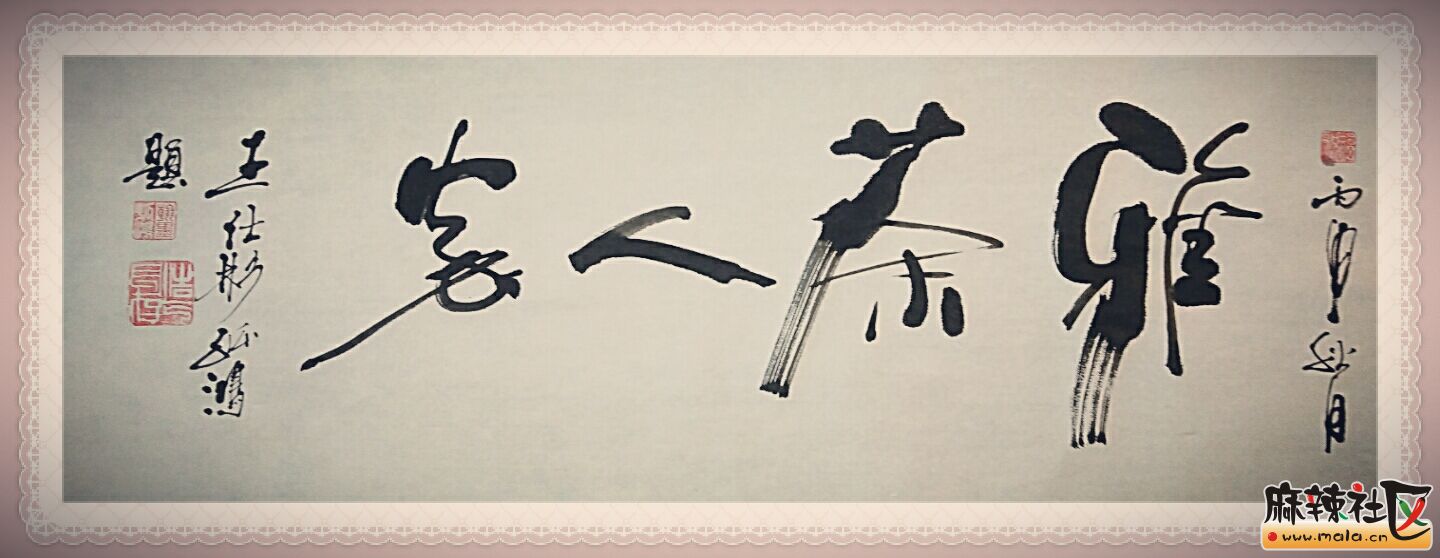 丙申
月
雅茶人家
王仕彬
鸿
题
麻辣社区
www.mala.cn